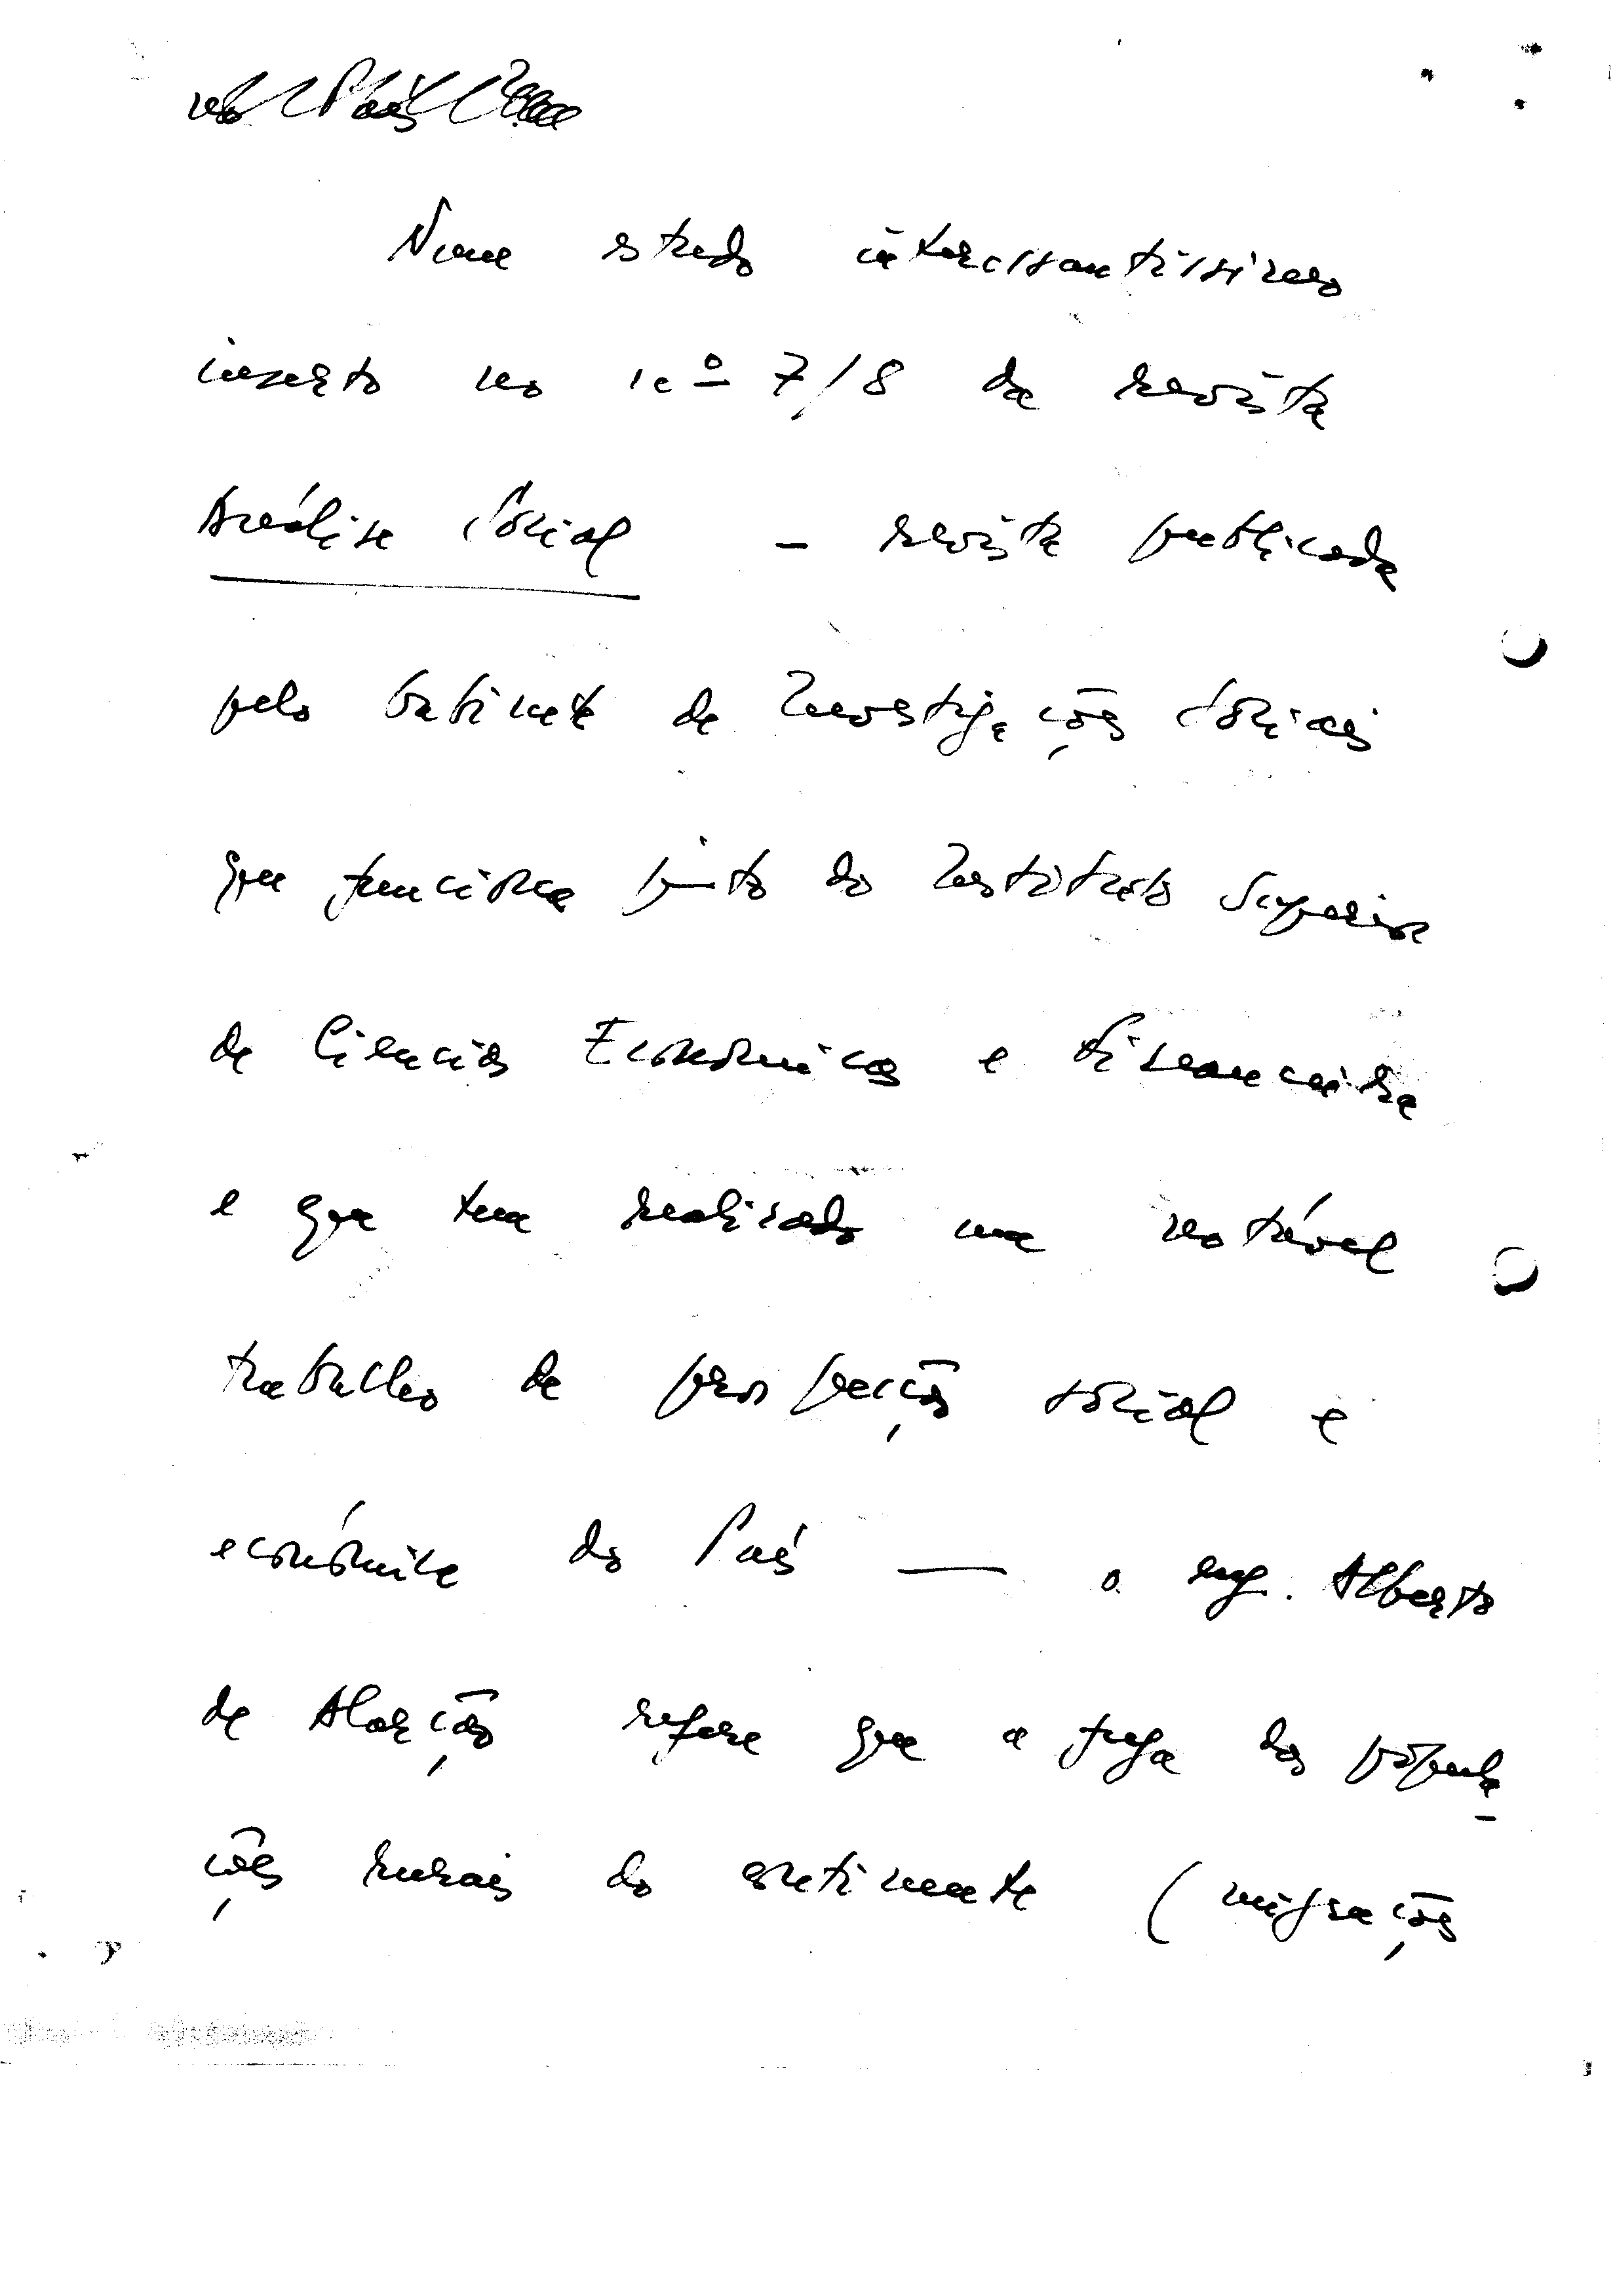 Num estudo interessantíssimo
inserto no nº 7/8 da revista
Análise Social - revista publicada
pelo Gabinete de Investigações Sociais
que funciona junto do Instituto Superior
de Ciências Económicas e Financeiras
e que tem realizado um notável
trabalho de prospecção social e
económica do País — o eng. Alberto
de Alarcão refere que a fuga das popula-
ções rurais do continente (migrações